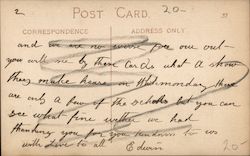 2 POST CARD. 20-
CORRESPONDENCE ADDRESS ONLY
and we are no worse for our out-
you will see by these cards what a show
they make here on Whitmonday these
are only a few of the Schools but you can
see what fine weather we had
thanking you for your kindness to us
with love to all Edwin
20